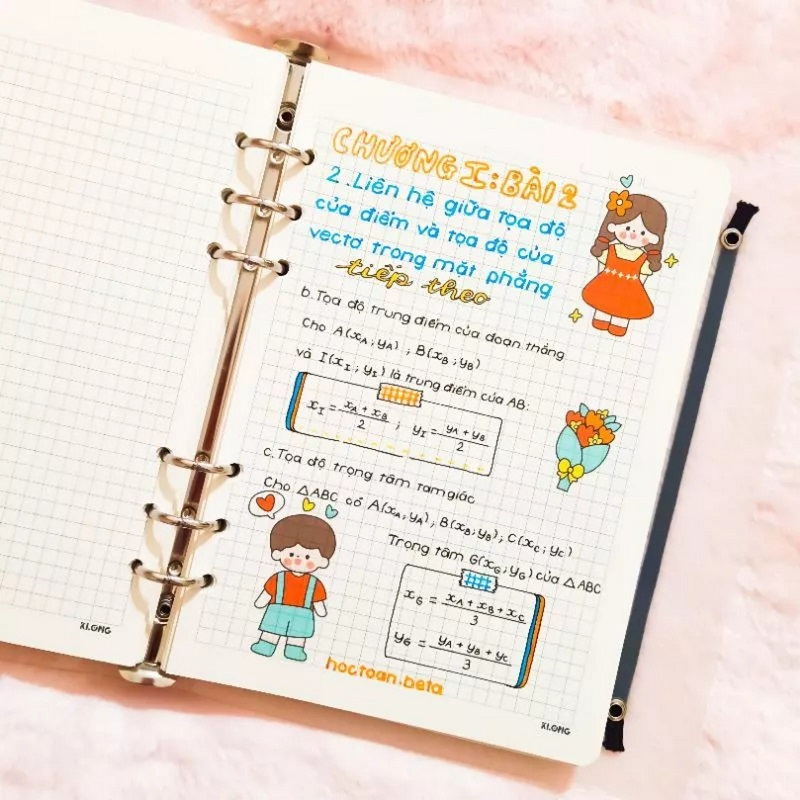 CHƯƠNG I: BÀI 2
2. Liên hệ giữa tọa độ
của điểm và tọa độ của
vectơ trong mặt phẳng
tiếp theo
b. Tọa độ trung điểm của đoạn thẳng
Cho A(x_A; y_A) ; B(x_B; y_B)
và I(x_I; y_I) là trung điểm của AB:
x_I = (x_A + x_B)/2 ; y_I = (y_A + y_B)/2
c. Tọa độ trọng tâm tam giác
Cho △ABC có A(x_A; y_A); B(x_B; y_B); C(x_C; y_C)
Trọng tâm G(x_G; y_G) của △ABC
x_G = (x_A + x_B + x_C)/3
y_G = (y_A + y_B + y_C)/3
hoctoan.beta
XI.ONG
XI.ONG